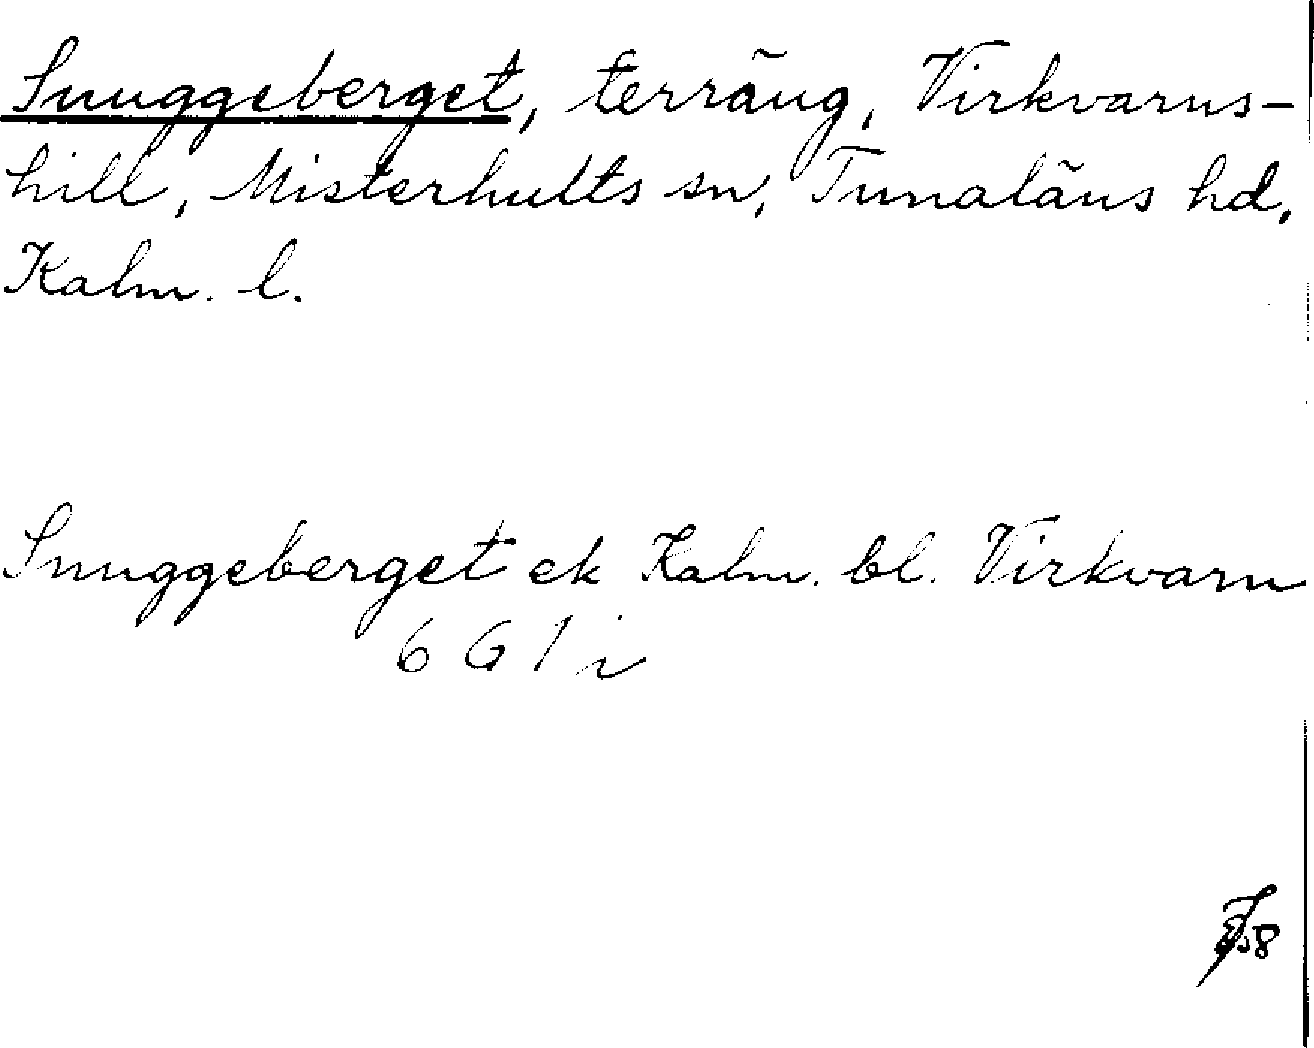 Snuggeberget, terräng, Virkvarns-
hill, Misterhults sn, Tunaläns hd,
Kalm. l.
Snuggeberget ek Kalm. bl. Virkvarn
6 G 1 i
58